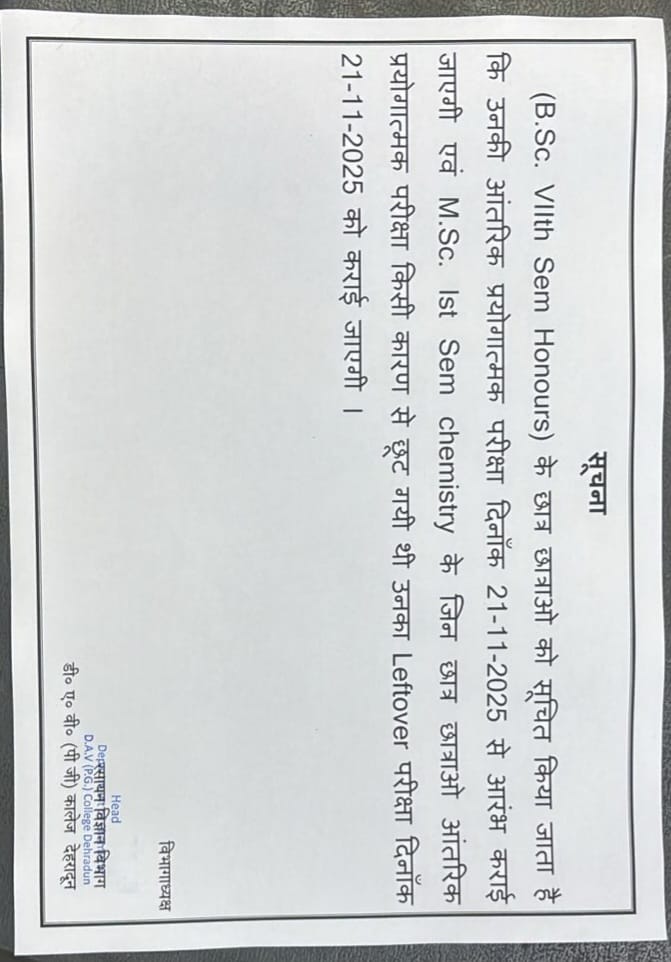 सूचना
(B.Sc. VIIth Sem Honours) के छात्र छात्राओ को सूचित किया जाता है
कि उनकी आंतरिक प्रयोगात्मक परीक्षा दिनॉक 21-11-2025 से आरंभ कराई
जाएगी एवं M.Sc. Ist Sem chemistry के जिन छात्र छात्राओ आंतरिक
प्रयोगात्मक परीक्षा किसी कारण से छूट गयी थी उनका Leftover परीक्षा दिनॉक
21-11-2025 को कराई जाएगी ।
विभागाध्यक्ष
Head
रसायन विज्ञान विभाग
D.A.V (P.G.) College Dehradun
डी० ए० वी० (पी जी) कालेज देहरादून